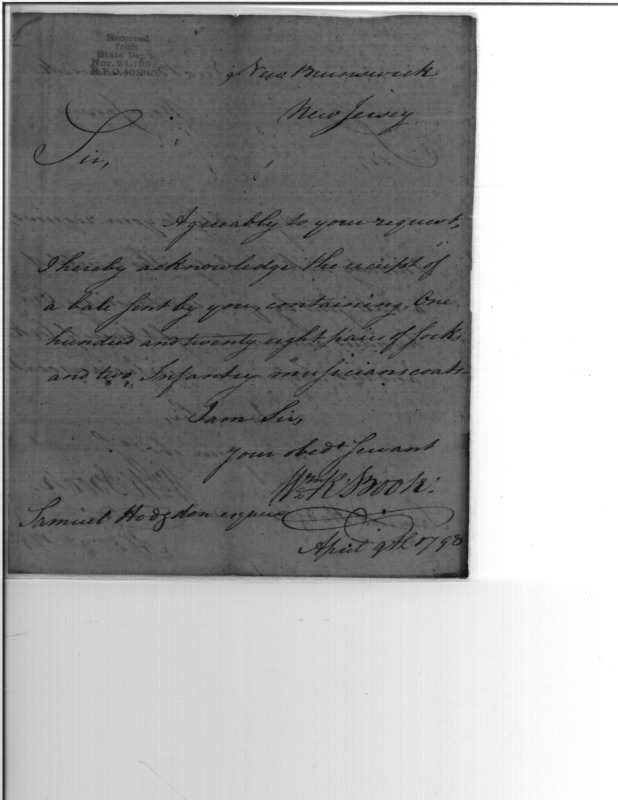 Received
from
State Dep't.
Nov. 24, 189
New Brunswick
New Jersey
Sir,
Agreeably to your request,
I hereby acknowledge the receipt of
a bale sent by you, containing, One
hundred and twenty eight pair of socks
and two, Infantry musicians coats.
I am Sir,
your obedt Servant
Wm K. Book.
Samuel Hodgdon esquire
April 9th 1798